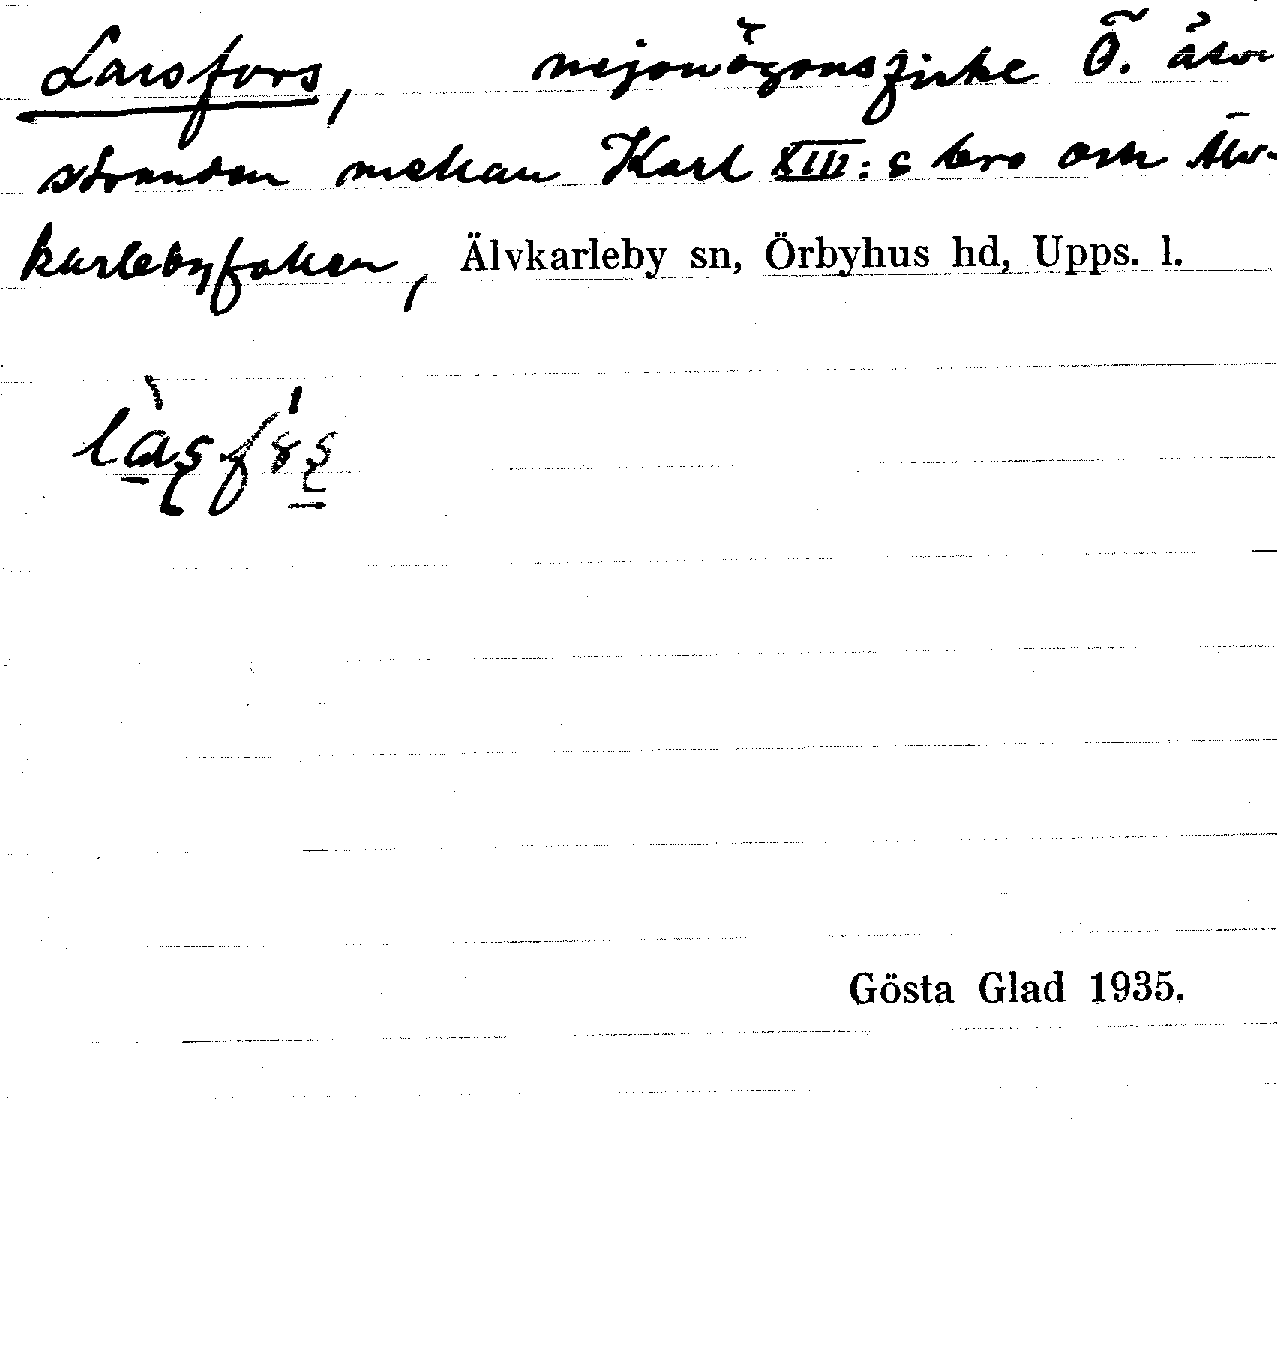 Larsfors, nejonögonsfiske Ö. älv-
stranden mellan Karl XIII:s bro och Älv-
karlebyfallen, Älvkarleby sn, Örbyhus hd, Upps. l.
Gösta Glad 1935.